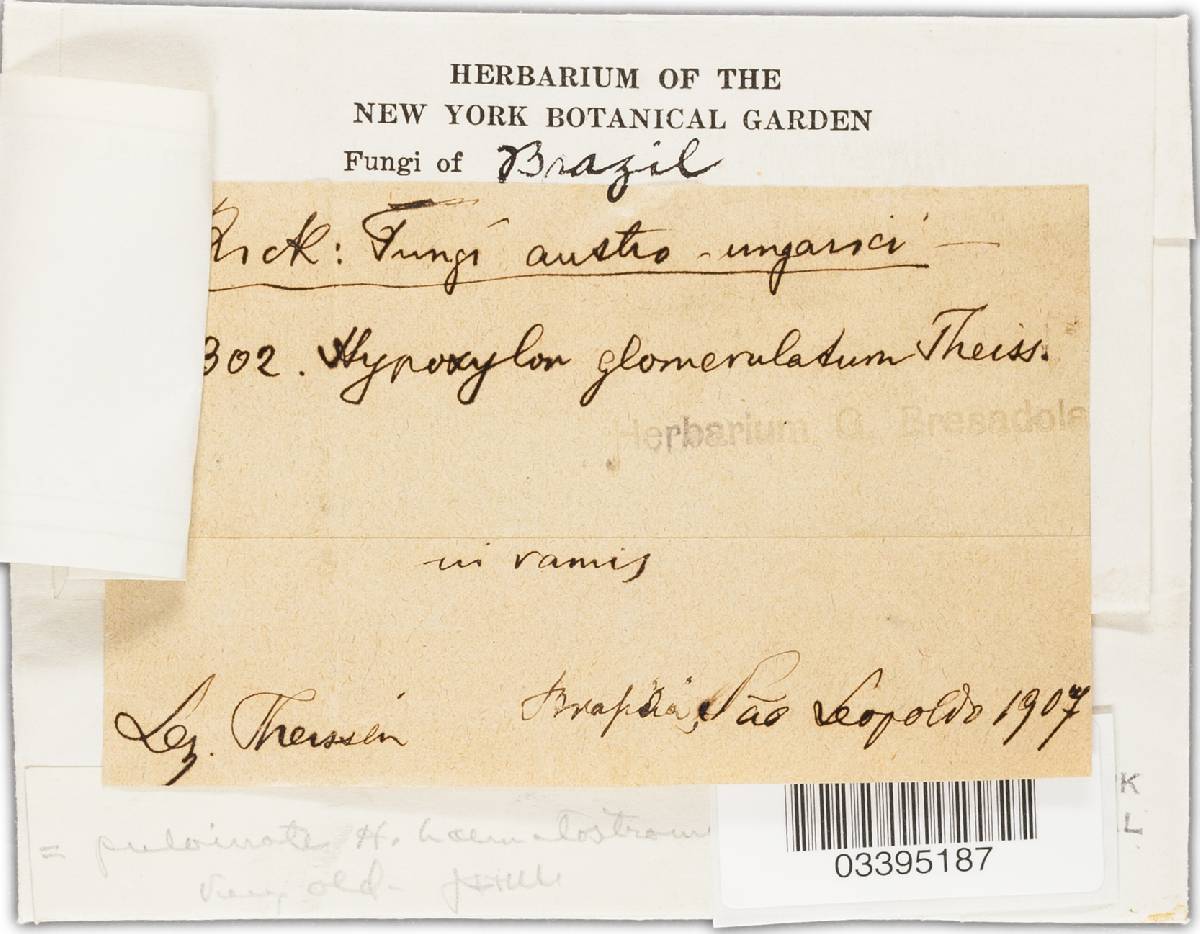 HERBARIUM OF THE
NEW YORK BOTANICAL GARDEN
Fungi of Brazil
Rick: Fungi austro-ungarici
302. Hypoxylon glomerulatum Theiss.
Herbarium G. Bresadola
in ramis
Leg. Theissen Brasilia, São Leopoldo 1907
K
L
= pulvinate H. haematostroma
very old
03395187